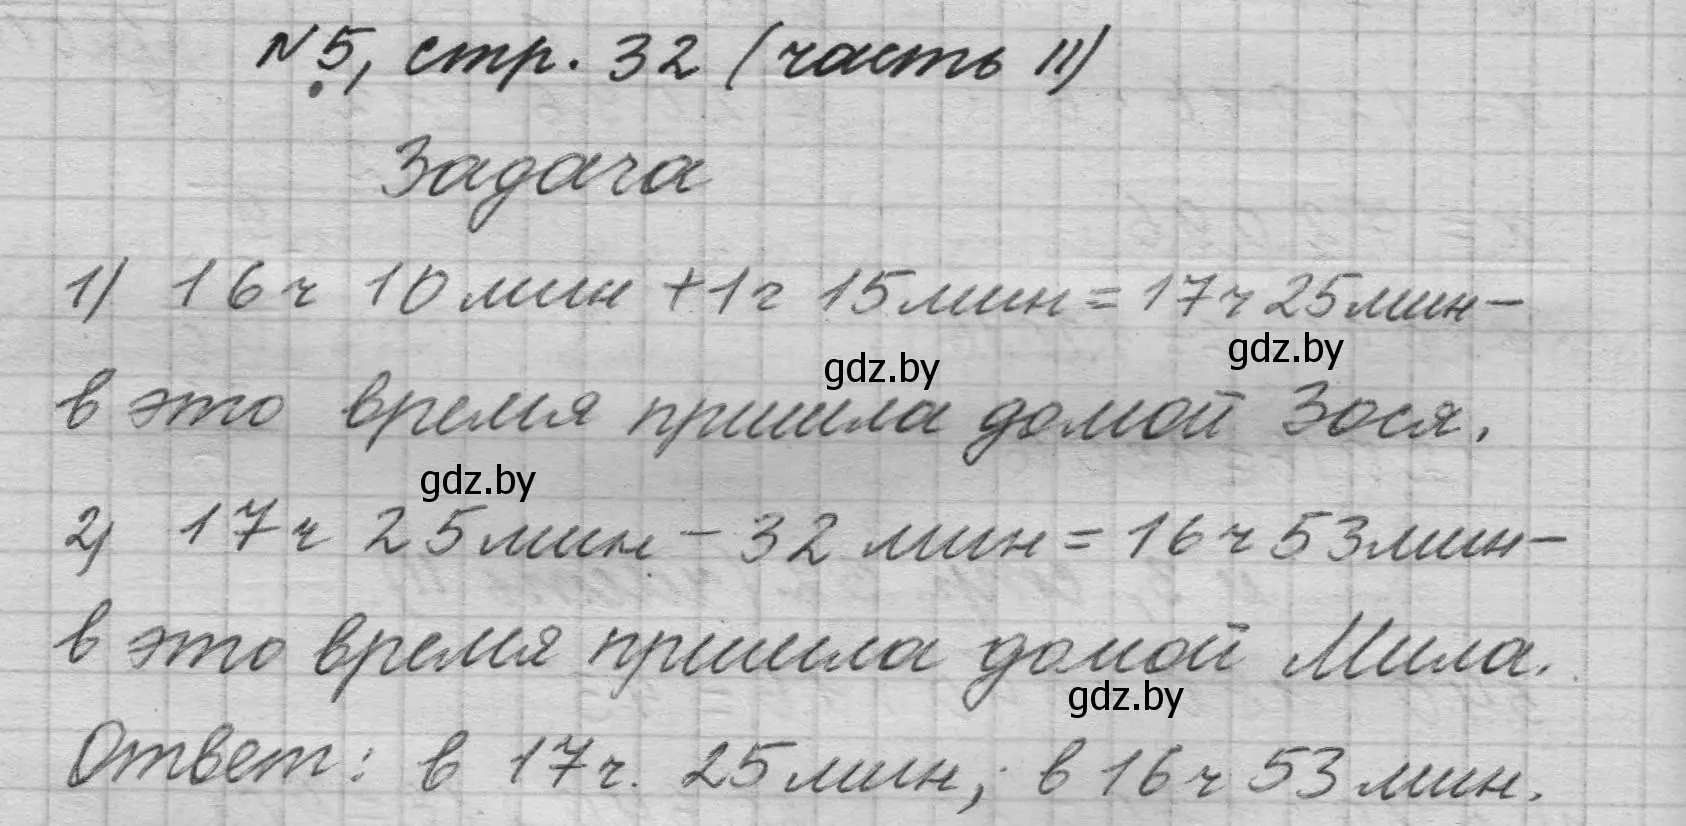 №5, стр. 32 (часть II)
Задача
1) 16ч 10 мин + 1ч 15 мин = 17ч 25 мин -
gdz.by
gdz.by
в это время пришла домой Зося.
gdz.by
2) 17ч 25 мин - 32 мин = 16ч 53 мин -
в это время пришла домой Мила.
gdz.by
Ответ: в 17ч. 25 мин; в 16ч 53 мин.